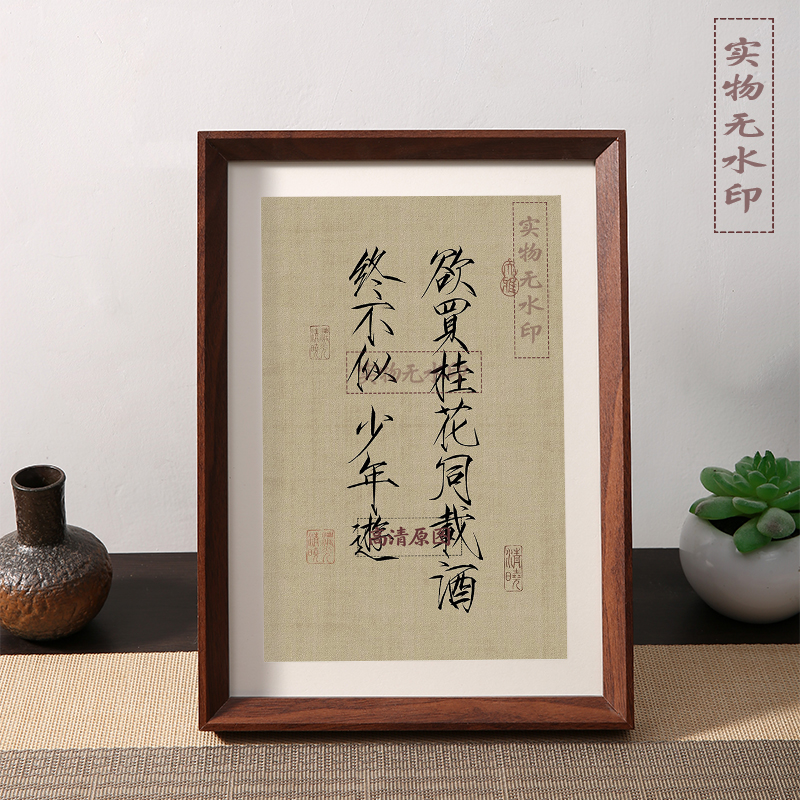 欲買桂花同載酒
終不似少年遊
实物无水印
实物无水印
实物无水
高清原图
清曉